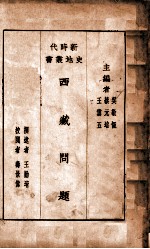 新時代
史地叢書
主編者
吳敬恆
蔡元培
王雲五
西藏問題
撰述者 王勤堉
校閱者